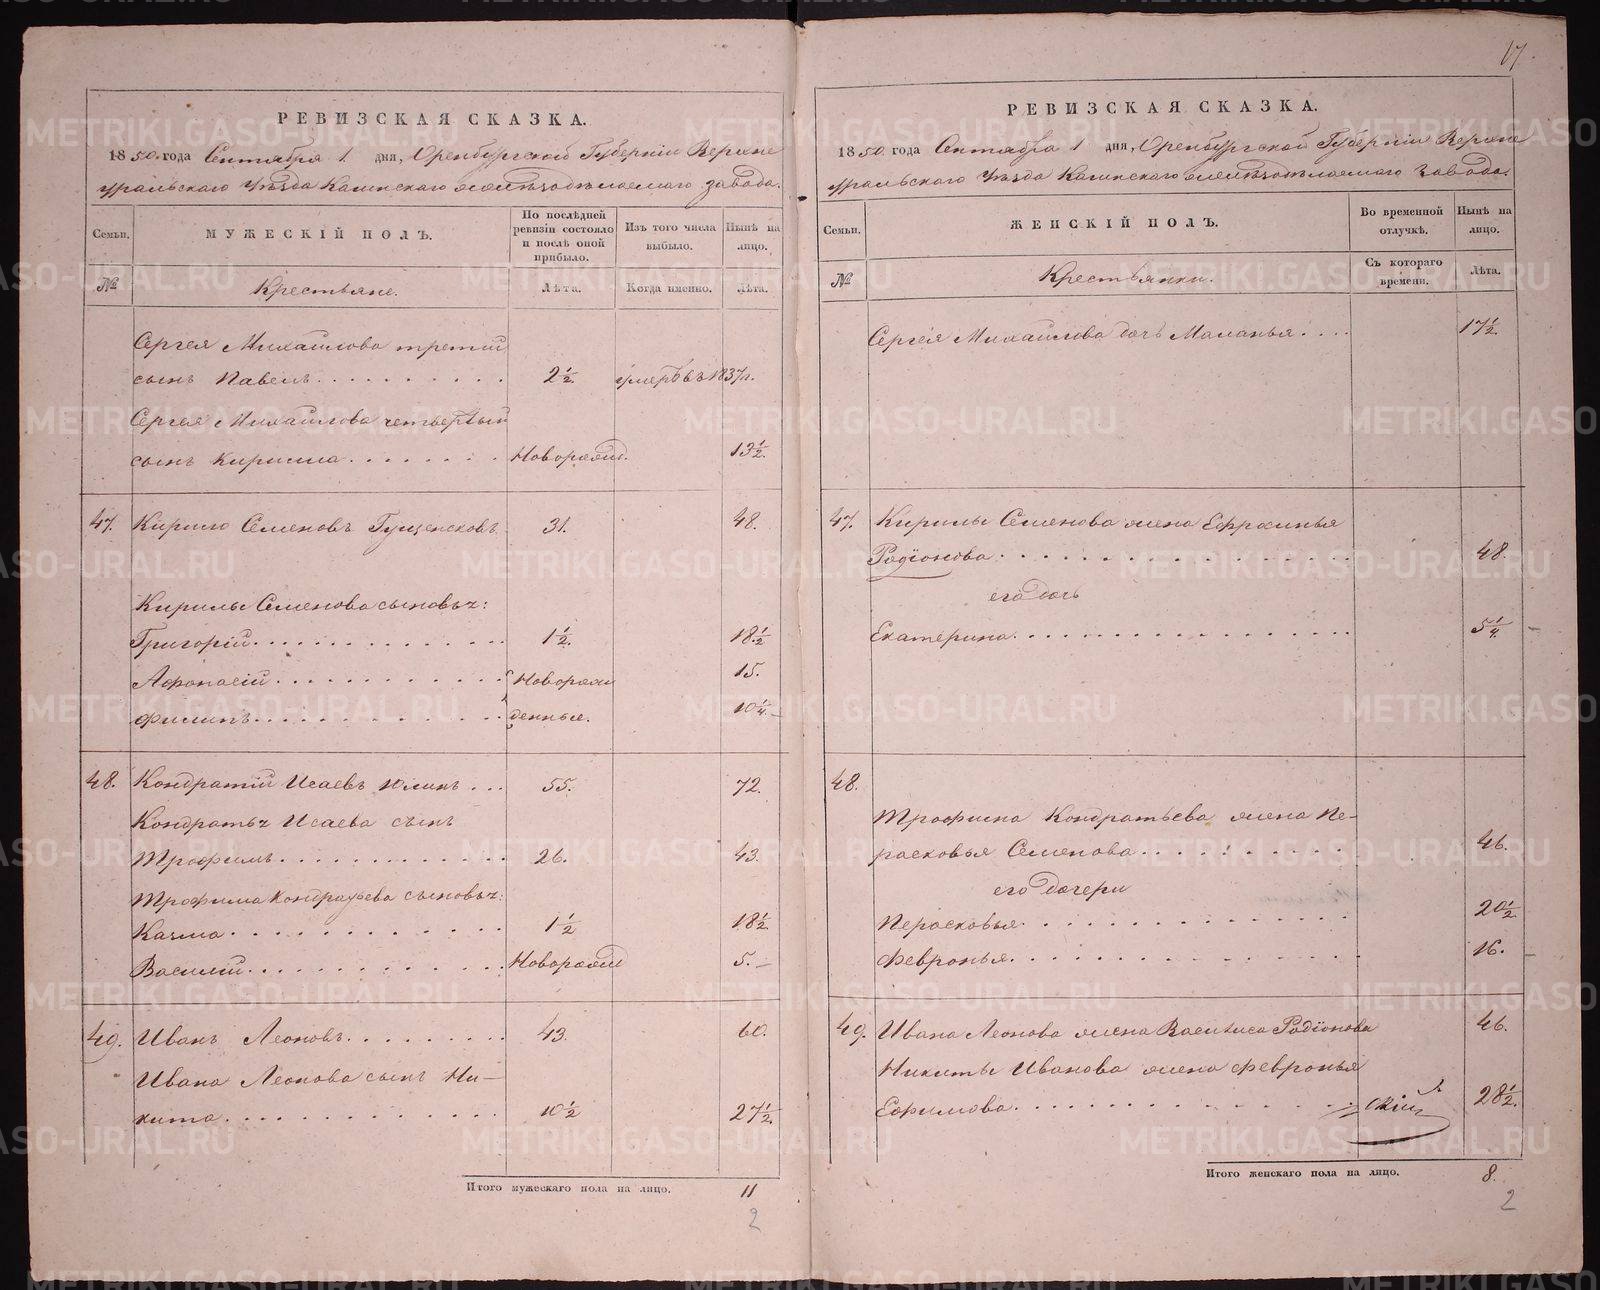 РЕВИЗСКАЯ СКАЗКА.
1850 года Сентября 1 дня, Оренбургской Губерніи Верхне
уральскаго Уѣзда Кагинскаго желѣзодѣлаемаго завода.
Семьи.
МУЖЕСКІЙ ПОЛЪ.
По послѣдней ревизіи состояло и послѣ оной прибыло.
Изъ того числа выбыло.
Нынѣ на лицо.
№
Крестьяне.
Лѣта.
Когда именно.
Лѣта.
Сергея Михайлова третій
сынъ Павелъ 2½ умеръ въ 1837 г.
Сергея Михайлова четвертый
сынъ Кирилла Новорожд. 13½.
47. Кирило Семеновъ 31. 48.
Кирилы Семенова сыновья:
Григорій 1½. 18½
Афонасій Новорож 15.
Филипъ денные. 10¼.
48. Кондратій Исаевъ Юлинъ 55. 72.
Кондратья Исаева сынъ
Трофимъ 26. 43.
Трофима Кондратьева сыновья:
Казма 1½ 18½
Василій Новорожд 5.
49. Иванъ Леоновъ 43. 60.
Ивана Леонова сынъ Ни-
кита 10½ 27½.
Итого мужескаго пола на лицо. 11
2
17
РЕВИЗСКАЯ СКАЗКА.
1850 года Сентября 1 дня, Оренбургской Губерніи Верхне
уральскаго Уѣзда Кагинскаго желѣзодѣлаемаго завода.
Семьи.
ЖЕНСКІЙ ПОЛЪ.
Во временной отлучкѣ.
Нынѣ на лицо.
№
Крестьянки.
Съ котораго времени.
Лѣта.
Сергея Михайлова дочь Маланья 17½.
47. Кирилы Семенова жена Ефросинья
Родіонова 48.
его дочь
Екатерина 5¼.
48.
Трофима Кондратьева жена Пе-
расковья Семенова 46.
его дочери
Перасковья 20½
Февронья 16.
49. Ивана Леонова жена Василиса Родіонова 46.
Никиты Иванова жена Февронья
Ефимова 28½
скій
Итого женскаго пола на лицо. 8.
2
METRIKI.GASO-URAL.RU